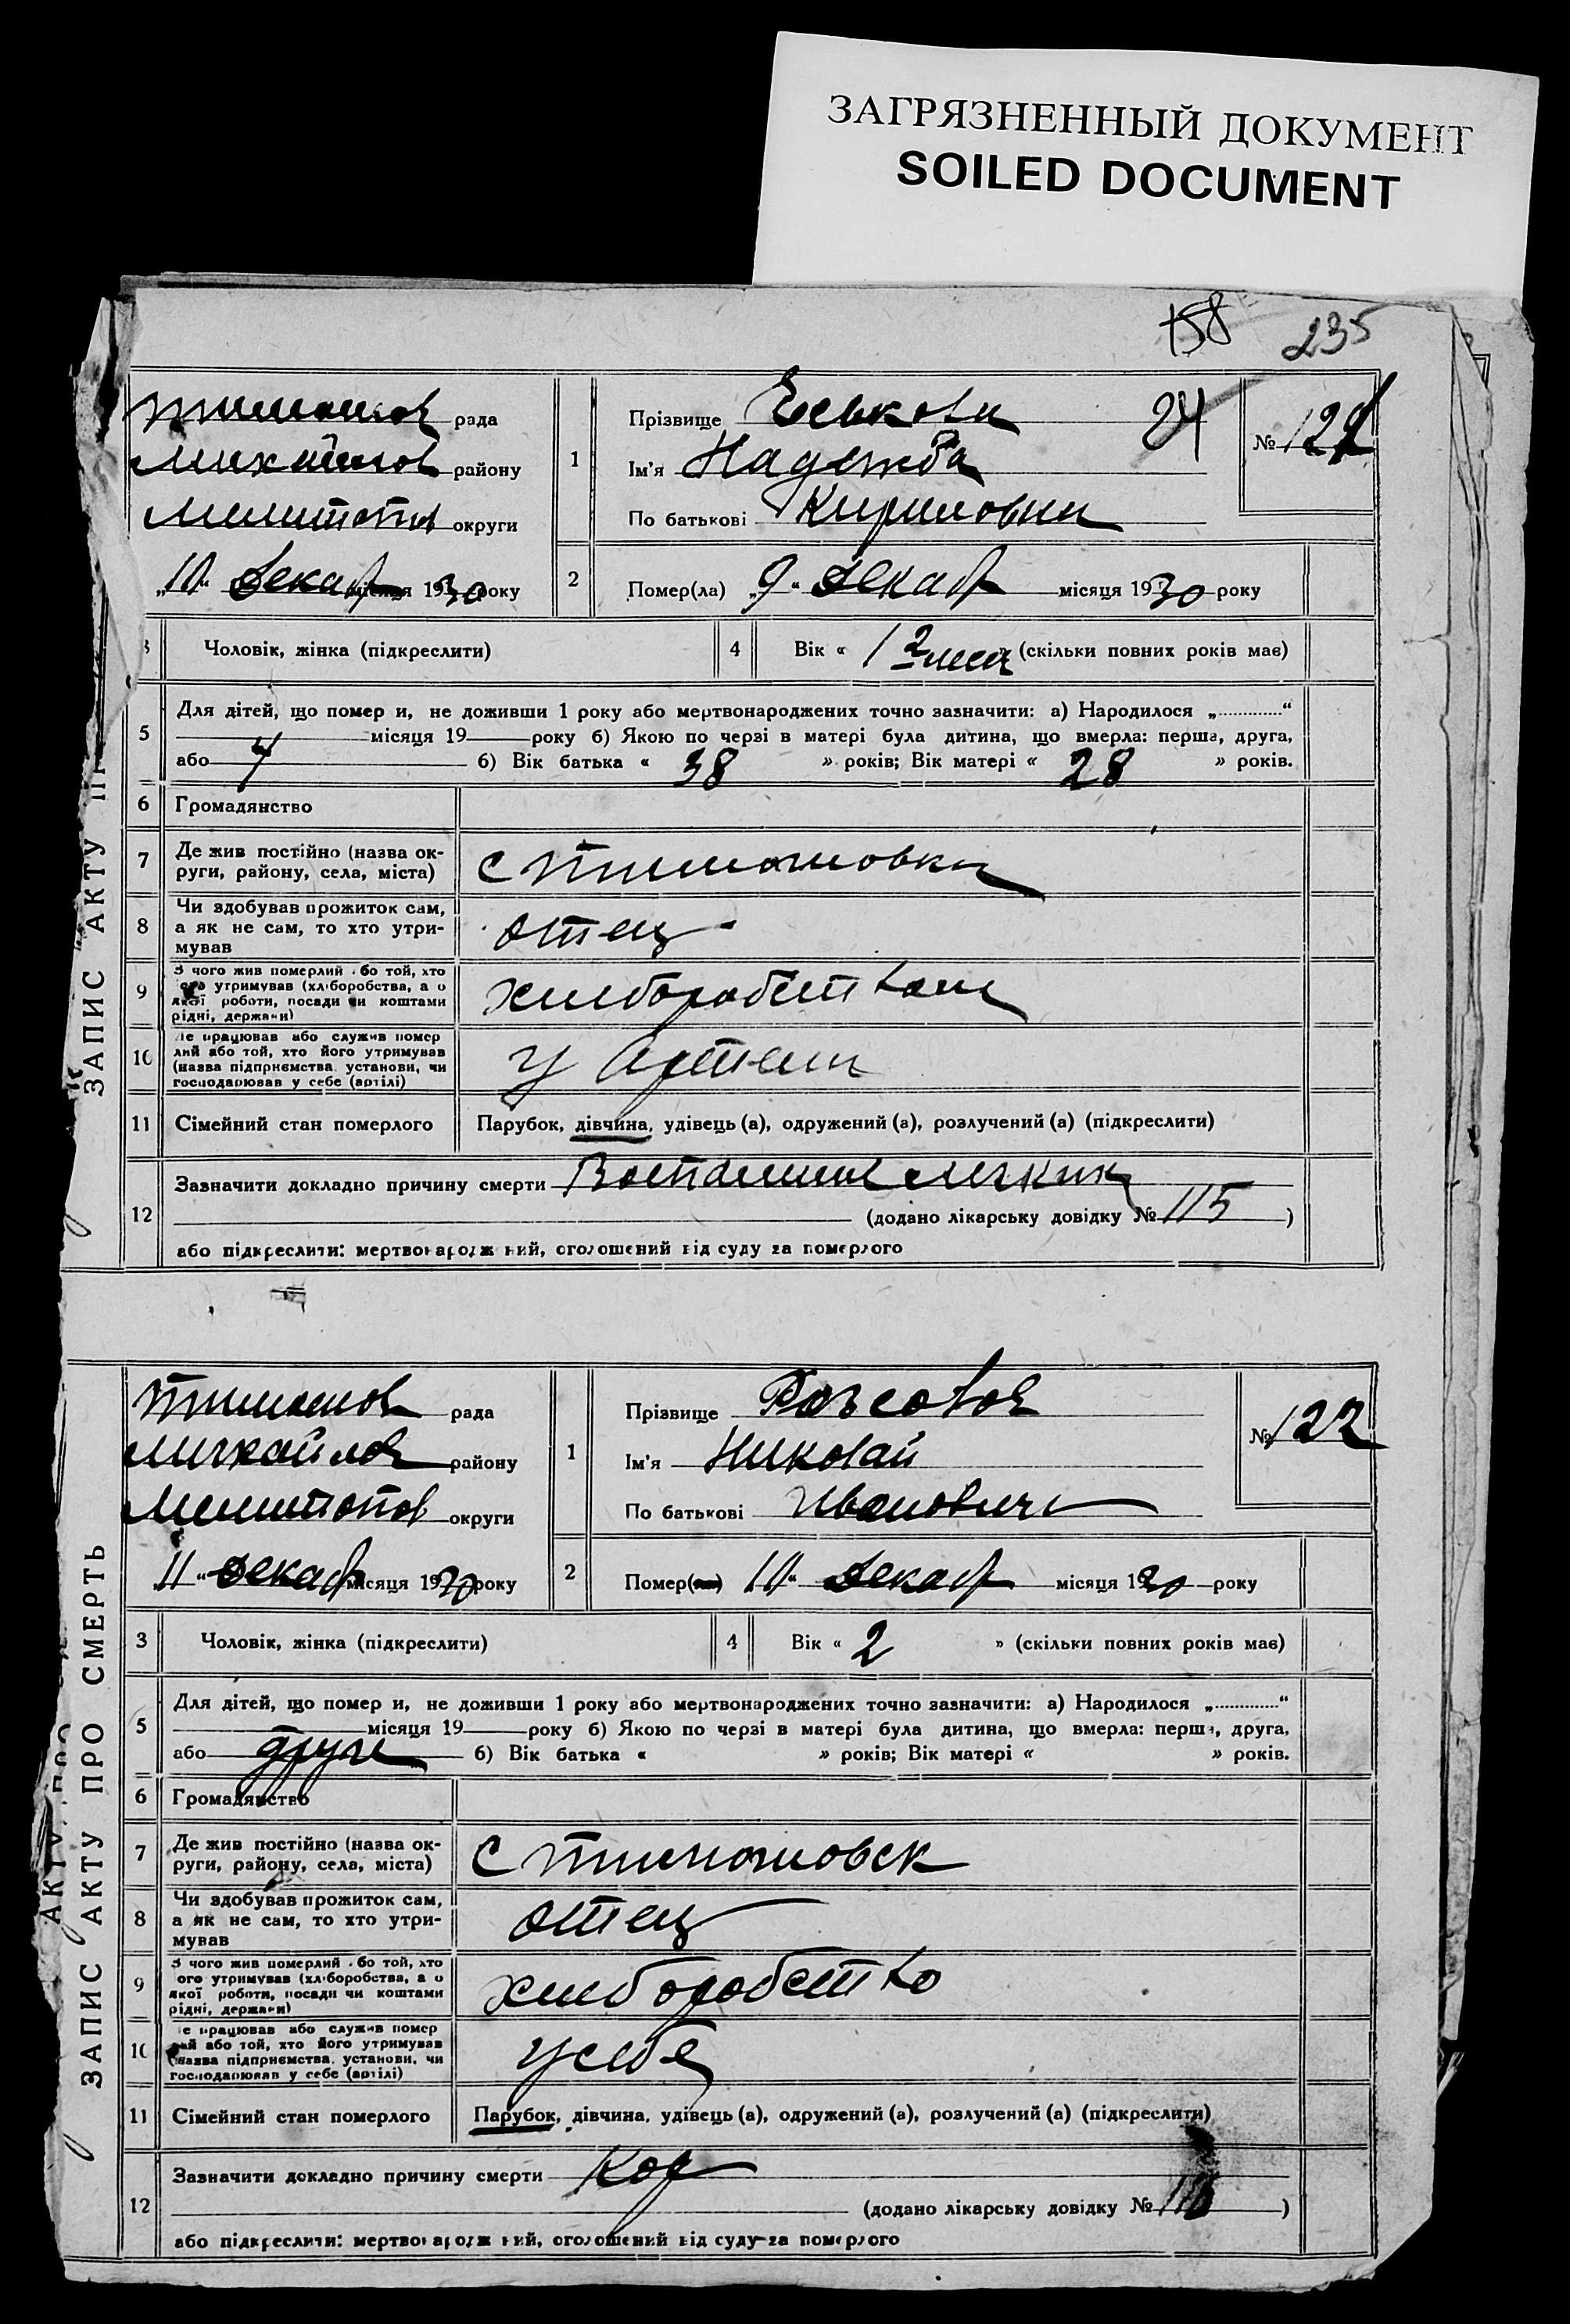 ЗАГРЯЗНЕННЫЙ ДОКУМЕНТ
SOILED DOCUMENT
158 235
ЗАПИС АКТУ
рада
району
округи
"10" декабр місяця 1930 року
1
Прізвище Еськова 24
Ім'я Надежда
По батькові Кириловна
№ 121
2
Помер(ла) „9“ декабр місяця 1930 року
3 Чоловік, жінка (підкреслити)
4 Вік « 1 2 мес (скільки повних років має)
5
Для дітей, що померли, не доживши 1 року або мертвонароджених точно зазначити: а) Народилося „............“
місяця 19 року б) Якою по черзі в матері була дитина, що вмерла: перша, друга,
або 4 б) Вік батька « 38 » років; Вік матері « 28 » років.
6 Громадянство
7 Де жив постійно (назва ок-
руги, району, села, міста) с Тимошовка
8 Чи здобував прожиток сам,
а як не сам, то хто утри-
мував
отец
9 З чого жив померлий або той, хто
його утримував (хліборобства, а о
якої роботи, посади чи коштами
рідні, держави)
10 Де працював або служив помер
лий або той, хто його утримував
(назва підприємства, установи, чи
господарював у себе (артілі)
у Артели
11 Сімейний стан померлого Парубок, дівчина, удівець (а), одружений (а), розлучений (а) (підкреслити)
12 Зазначити докладно причину смерти
(додано лікарську довідку № 115 )
або підкреслити: мертвонароджений, оголошений від суду за померлого
ЗАПИС АКТУ ПРО СМЕРТЬ
рада
Михайлов району
Мелитопов округи
„11“ декабр місяця 1930 року
1
Прізвище
Ім'я Николай
По батькові Иванович
№ 122
2
Помер(ла) 10“ декабр місяця 1930 року
3 Чоловік, жінка (підкреслити)
4 Вік « 2 » (скільки повних років має)
5
Для дітей, що померли, не доживши 1 року або мертвонароджених точно зазначити: а) Народилося „............“
місяця 19 року б) Якою по черзі в матері була дитина, що вмерла: перша, друга,
або друге б) Вік батька « » років; Вік матері « » років.
6 Громадянство
7 Де жив постійно (назва ок-
руги, району, села, міста) с Тимошовк
8 Чи здобував прожиток сам,
а як не сам, то хто утри-
мував
отец
9 З чого жив померлий або той, хто
його утримував (хліборобства, а о
якої роботи, посади чи коштами
рідні, держави)
хлеборобство
10 Де працював або служив помер
лий або той, хто його утримував
(назва підприємства, установи, чи
господарював у себе (артілі)
у себе
11 Сімейний стан померлого Парубок, дівчина, удівець (а), одружений (а), розлучений (а) (підкреслити)
12 Зазначити докладно причину смерти Кор
(додано лікарську довідку № )
або підкреслити: мертвонароджений, оголошений від суду за померлого